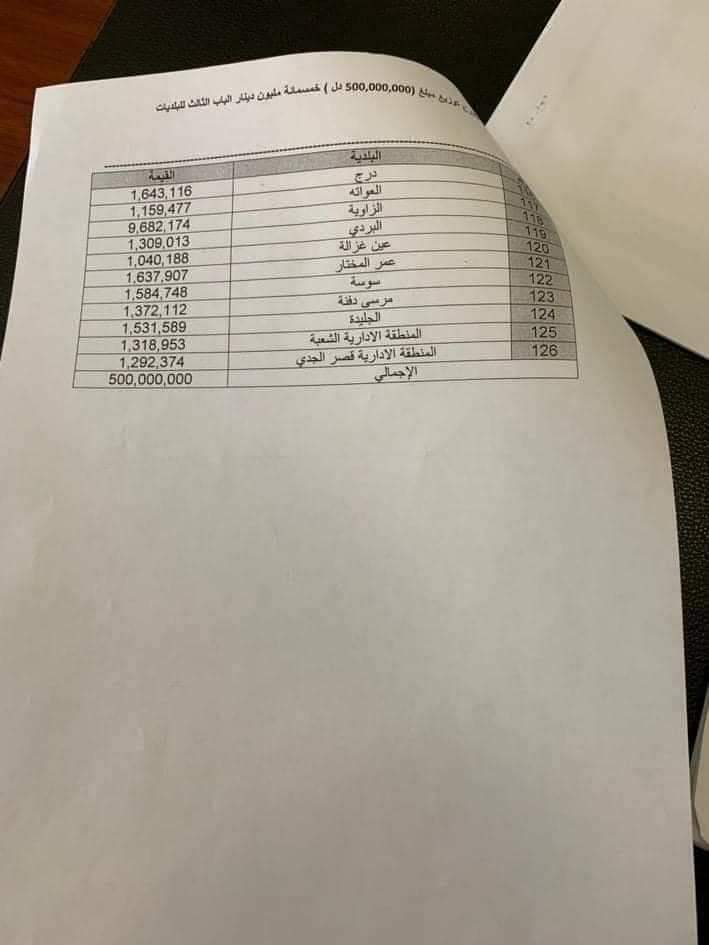 توزيع مبلغ (500,000,000 دل ) خمسمائة مليون دينار الباب الثالث للبلديات
البلدية القيمة
درج 1,643,116
117 العواته 1,159,477
118 الزاوية 9,682,174
119 البردي 1,309,013
120 عين غزالة 1,040,188
121 عمر المختار 1,637,907
122 سوسة 1,584,748
123 مرسى دفنة 1,372,112
124 الجليدة 1,531,589
125 المنطقة الادارية الشعبة 1,318,953
126 المنطقة الادارية قصر الجدي 1,292,374
الإجمالي 500,000,000